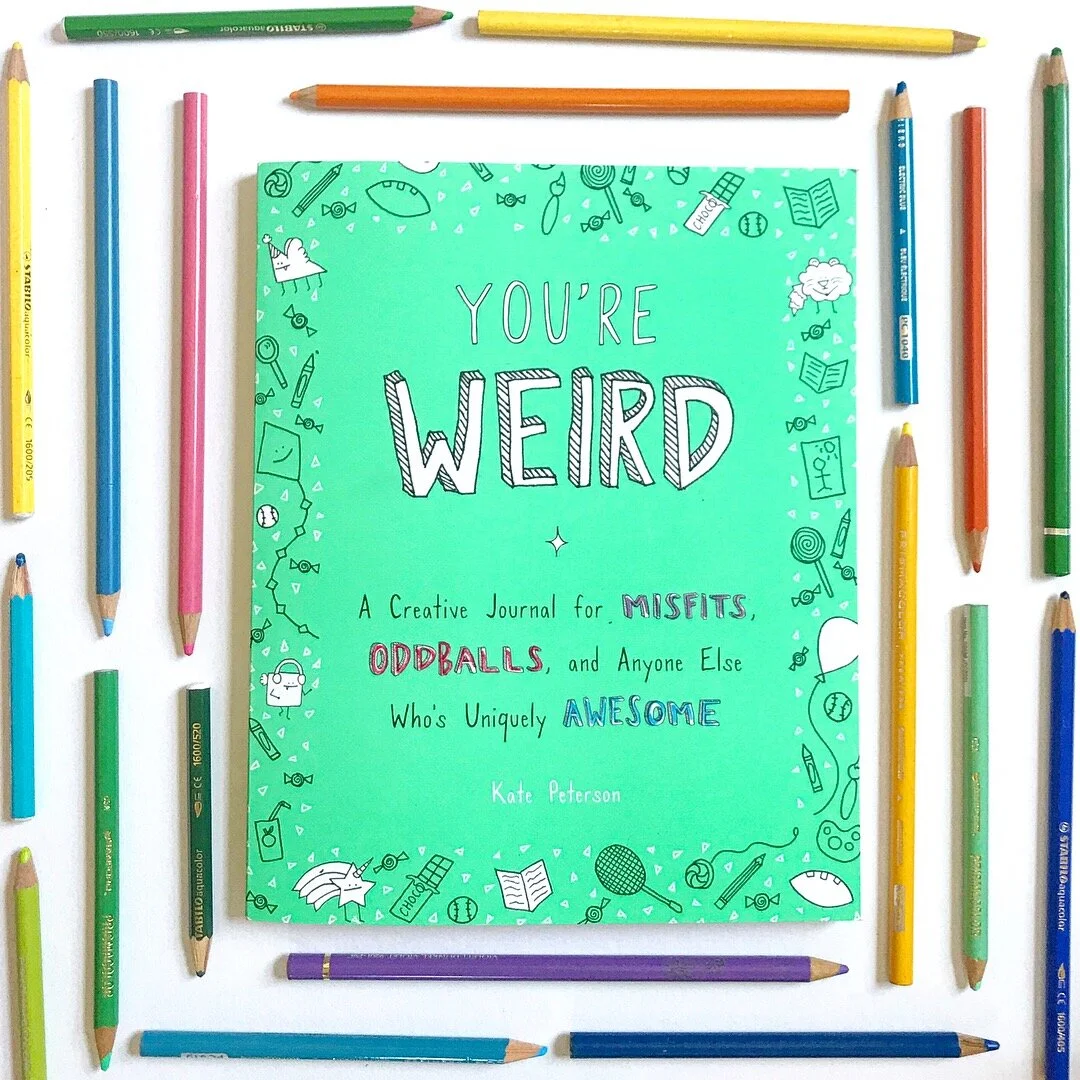 STABILO aquacolor CE 1600/550
CHOCO
YOU'RE
WEIRD
A Creative Journal for MISFITS,
ODDBALLS, and Anyone Else
Who's Uniquely AWESOME
Kate Peterson
CHOCO
STABILO aquacolor 1600/205
ELECTRIC BLUE
BLEU ÉLECTRIQUE
PC1040
CE 1600/520
STABILO aquacolor
STABILO aquacolor CE 1600/405